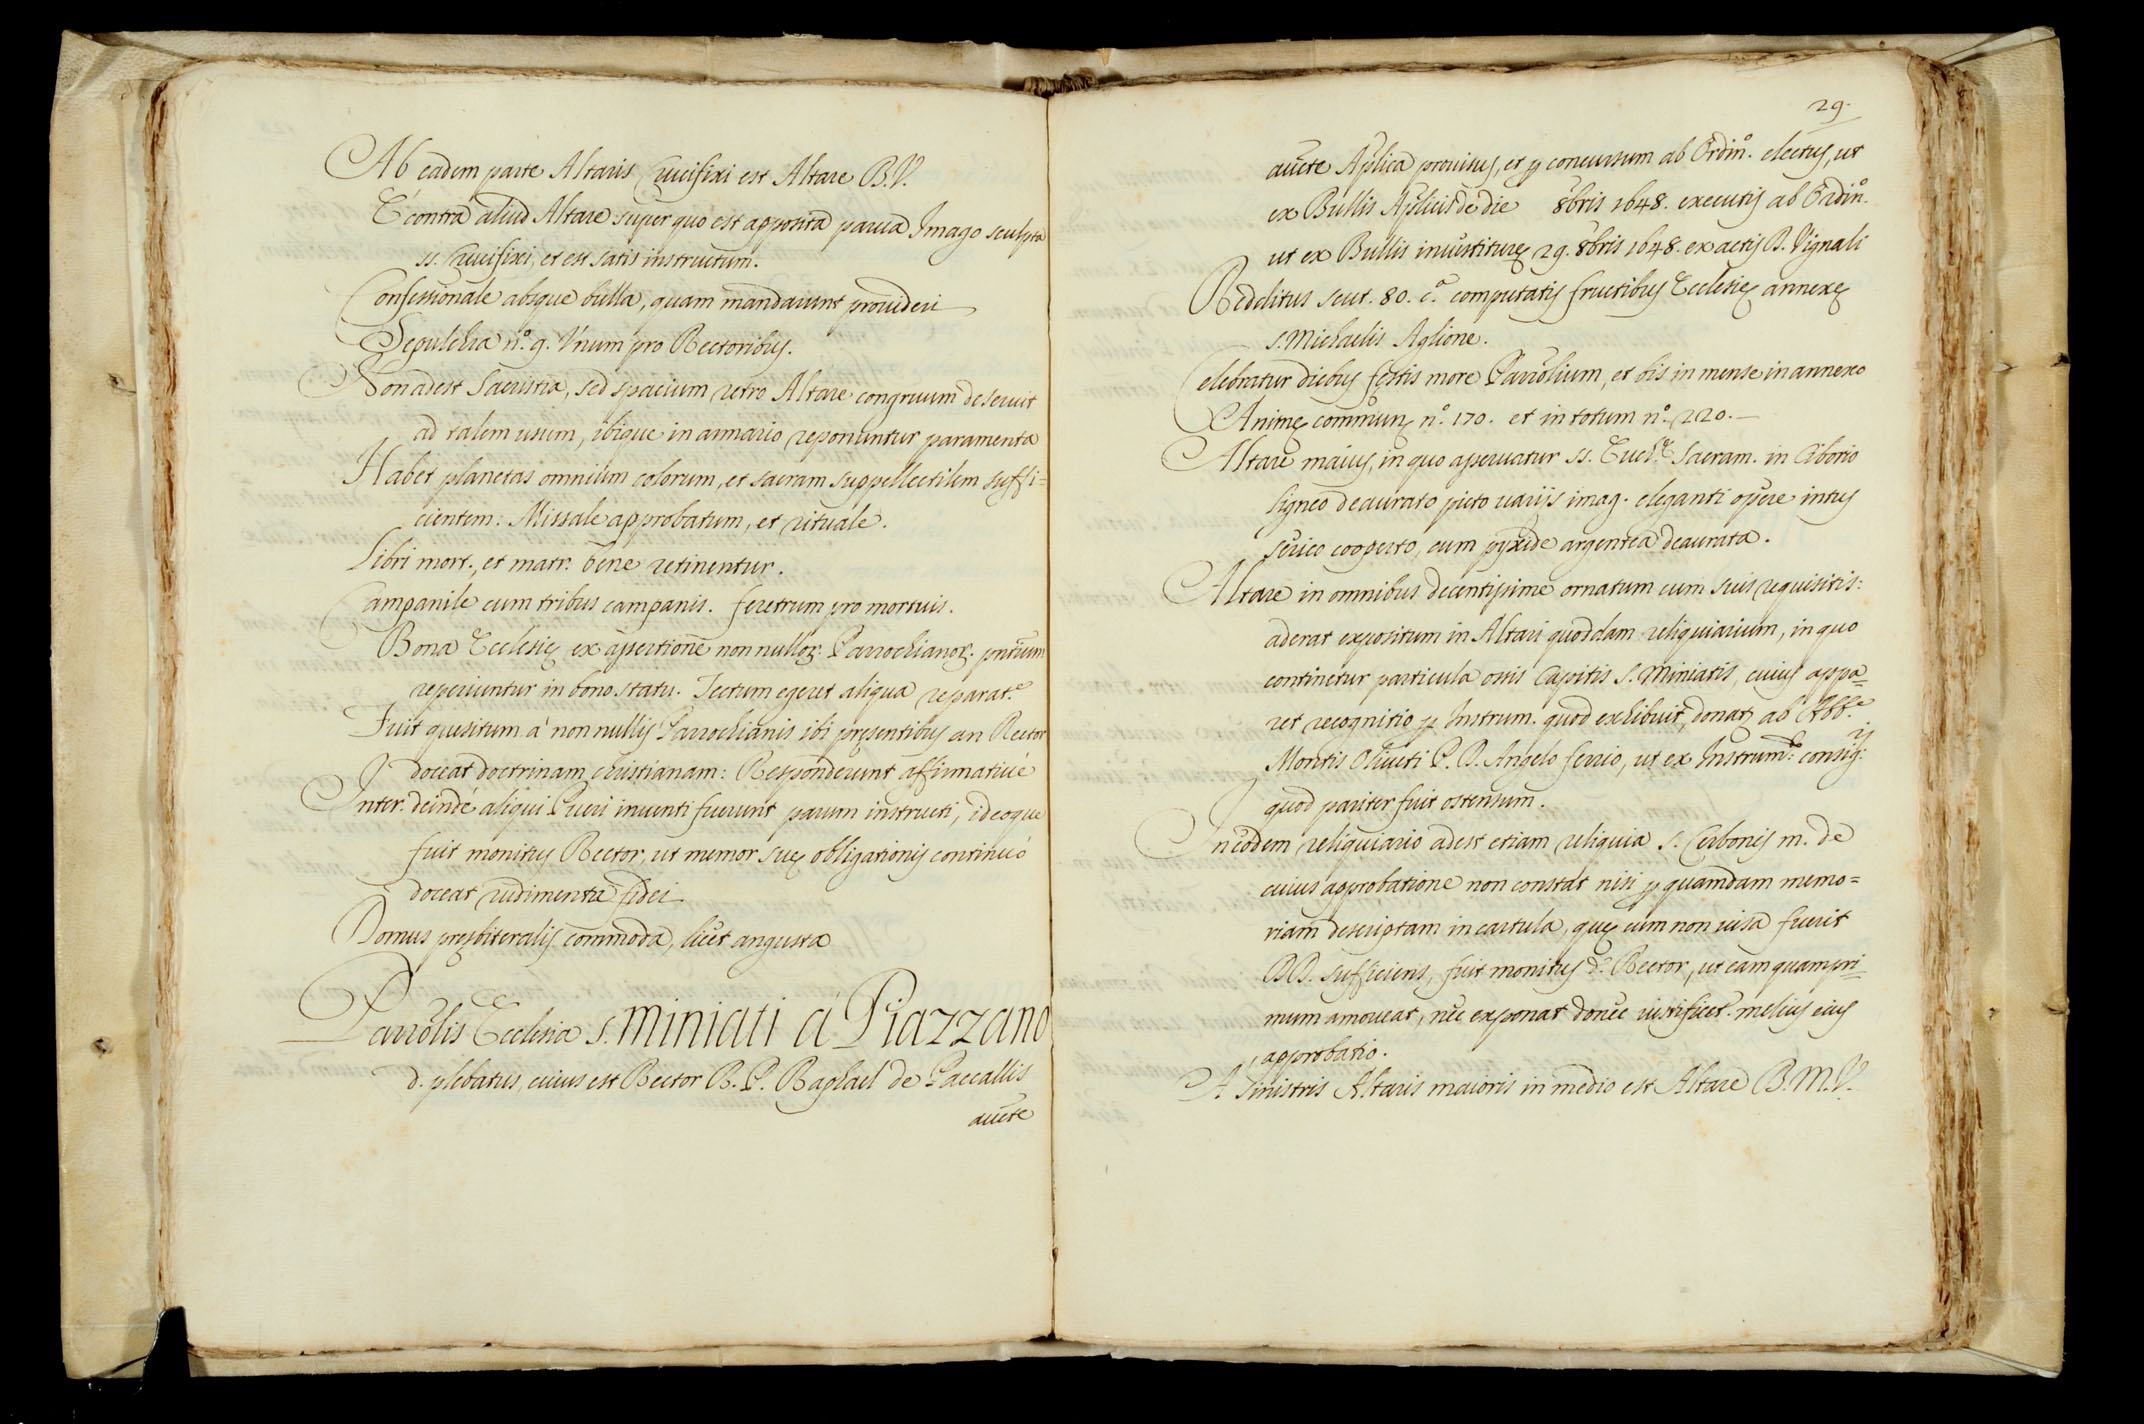 Ab eadem parte Altaris Crucifixi est Altare B.V.
E' contra aliud Altare super quo est apposita parua Imago sculpta
ss. Crucifixi, et est satis instructum.
Confessionale absque bulla, quam mandarunt prouideri
Sepulchra nº. 9. Vnum pro Rectoribus.
Non adest Sacristia, sed spacium retro Altare congruum deseruit
ad talem usum, ibique in armario reponuntur paramenta
Habet planetas omnium colorum, et sacram suppellectilem suffi=
cientem: Missale approbatum, et rituale.
Libri mort., et matr. bene retinentur.
Campanile cum tribus campanis. feretrum pro mortuis.
Bona Ecclesię ex assertione non nulloꝝ. Parrochianoꝝ. pntium
reperiuntur in bono statu. Tectum egeret aliqua reparat.e
Fuit quesitum à non nullis Parrochianis ibi pręsentibus an Rector
doceat doctrinam christianam: Responderunt affirmatiuè
Inter. deindè aliqui Pueri inuenti fuerunt parum instructi, ideoque
fuit monitus Rector, ut memor suę obligationis continuò
doceat rudimenta fidei
Domus pręsbiteralis commoda, licet angusta
Parrolis Ecclesia S. Miniati à Piazzano
d. plebatus, cuius est Rector R. P. Raphael de Paccallis
aucte
29.
aucte Aplica prouisus, et ꝑ concursum ab Ordinº. electus, ut
ex Bullis Aplicis de die 8bris 1648. executis ab Ordinº.
ut ex Bullis inuestiturę 29. 8bris 1648. ex actis D. Vignali
Redditus scut. 80. cª. computatis fructibus Ecclesię annexę
S. Michaelis Aglione.
Celebratur diebus festis more Parrolium, et bis in mense in annexo
Animę communę nº. 170. et in totum nº. 220.—
Altare maius, in quo asseruatur ss. Euc. Sacram. in Ciborio
ligneo deaurato picto uarijs imag. eleganti opere intus
serico cooperto, cum pyxide argentea deaurata.
Altare in omnibus decentissime ornatum cum suis requisitis:
aderat expositum in Altari quoddam reliquiarium, in quo
continetur particula ossis Capitis S. Miniatis, cuius appa=
ret recognitio ꝑ Instrum. quod exhibuit, donat. ab Abb.e
Montis Oliueti P. D. Angelo ferrio, ut ex Instrum.to consig.
quod pariter fuit ostensum.
In eodem reliquiario adest etiam reliquia S. Cerbonis m. de
cuius approbatione non constat nisi ꝑ quamdam memo=
riam descriptam in cartula, quę cum non uisa fuerit
DD. sufficiens, fuit monitus d. Rector, ut eam quampri=
mum amoueat, nec exponat donec iustificet. melius eius
approbatio.
A sinistris Altaris maioris in medio est Altare B.M.V.